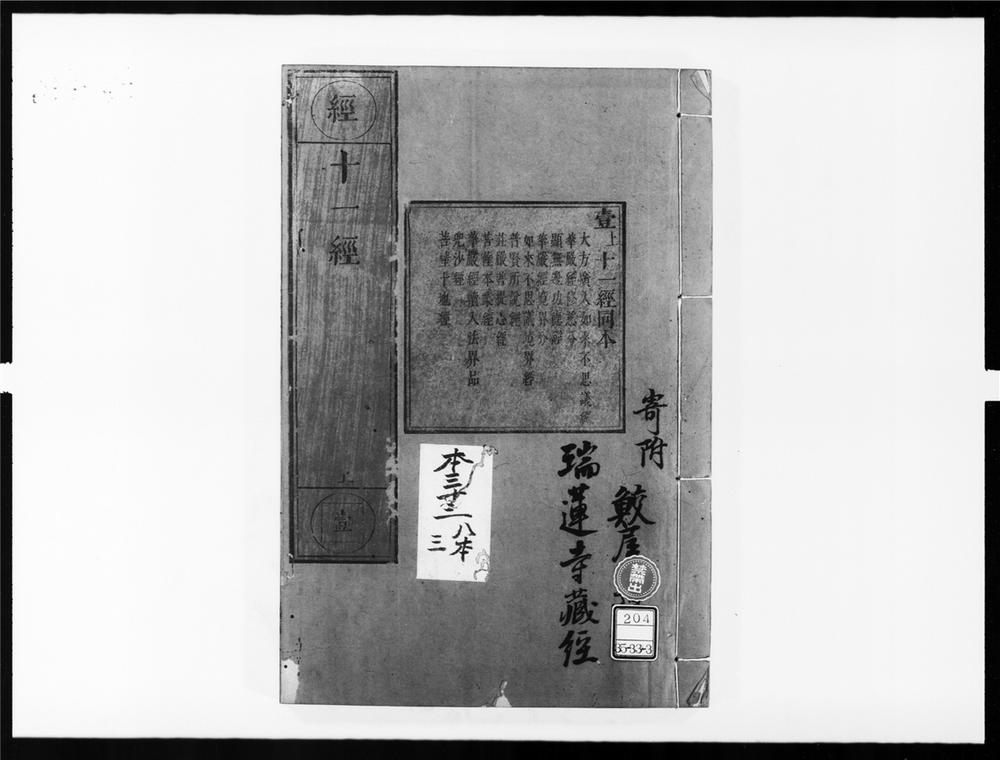 經
十一經
上
壹
壹上十一經同本
大方廣入如來不思議
華嚴經修慈分
顯無邊功德經
華嚴經境界分
如來不思議境界經
普賢所說經
莊嚴菩提心經
菩薩本業經
華嚴經續入法界品
兜沙經
菩薩十地經
寄附
鮫屋
瑞蓮寺藏經
本三
八本
三
禁帶出
204
35-33-3